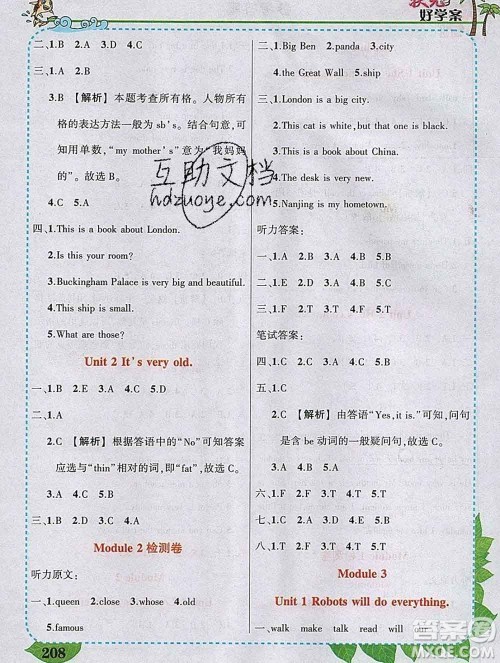 状元
好学案
二、1.B 2.A 3.C 4.B
三、1.A
3.B 【解析】本题考查所有格。人物所有
格的表达方法一般为 sb's。结合句意,可
知用单数,"my mother's"意为"我妈妈
的"。故选 B。
四、1.This is a book about London.
2.Is this your room?
3.Buckingham Palace is very big and beautiful.
4.This ship is small.
5.What are those?
Unit 2 It's very old.
一、1.B 2.E 3.A 4.C 5.D
二、1.A
2.C 【解析】根据答语中的"No"可知答案
应选与"thin"相对的词,即"fat",故选 C。
3.A 4.C 5.B
三、1.A 2.B 3.B 4.A 5.B
Module 2 检测卷
听力原文:
一、1.queen 2.close 3.whose 4.old
5.famous
208
二、1.Big Ben 2.panda 3.city
4.the Great Wall 5.ship
三、1.London is a big city.
2.This cat is white, but that one is black.
3.This is a book about China.
4.The desk is very new.
5.Nanjing is my hometown.
听力答案:
一、1.A 2.C 3.A 4.B 5.C
二、1.A 2.A 3.B 4.A 5.B
三、1.F 2.T 3.F 4.T 5.T
笔试答案:
四、1.C 2.A 3.A 4.B 5.A
五、1.C
2.C 【解析】由答语"Yes,it is."可知,问句
是含 be 动词的一般疑问句,故选 C。
3.A 4.B 5.A
六、1.F 2.F 3.T 4.T 5.T
七、1.E 2.D 3.B 4.A 5.C
八、1.T 2.F 3.T 4.T 5.F
Module 3
Unit 1 Robots will do everything.
一、walk make talk read will do
互助文档
hdzuoye.com